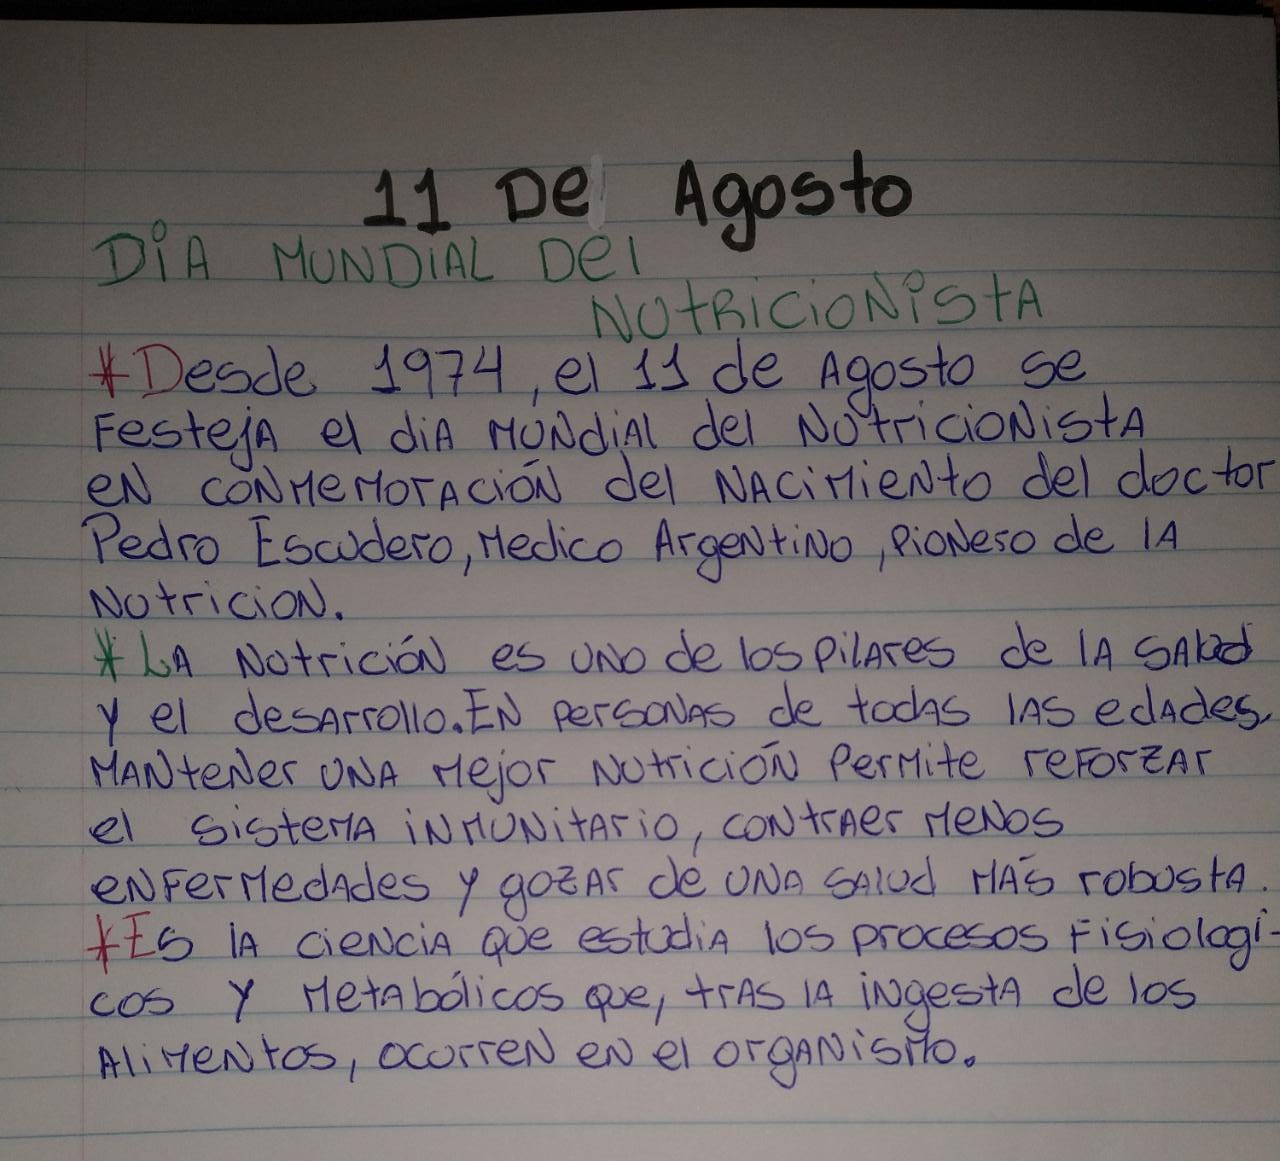 11 De Agosto
DiA MUNDiAL Del
NUtRiCiONistA
*Desde 1974, el 11 de Agosto se
Festeja el diA MUNdiAl del NUtricioNistA
eN CONMeMorAcióN del NACiMieNto del doctor
Pedro Escudero, Medico ArgeNtiNo, PioNero de lA
NUtricioN.
*LA NUtricióN es UNO de los PilAres de lA SAlud
y el desArrollo. EN PersoNAs de todAs lAs edAdes.
MANteNer UNA Mejor NUtricióN PerMite reForzAr
el SisteMA iNMUNitArio, CONtrAer MeNos
eNFerMedAdes y gozAr de UNA SAlud MÁS robustA.
*Es lA CieNCiA que estudiA los procesos Fisiologi-
cos y MetAbólicos que, trAs lA iNgestA de los
AliMeNtos, ocurreN eN el orgANisMo.